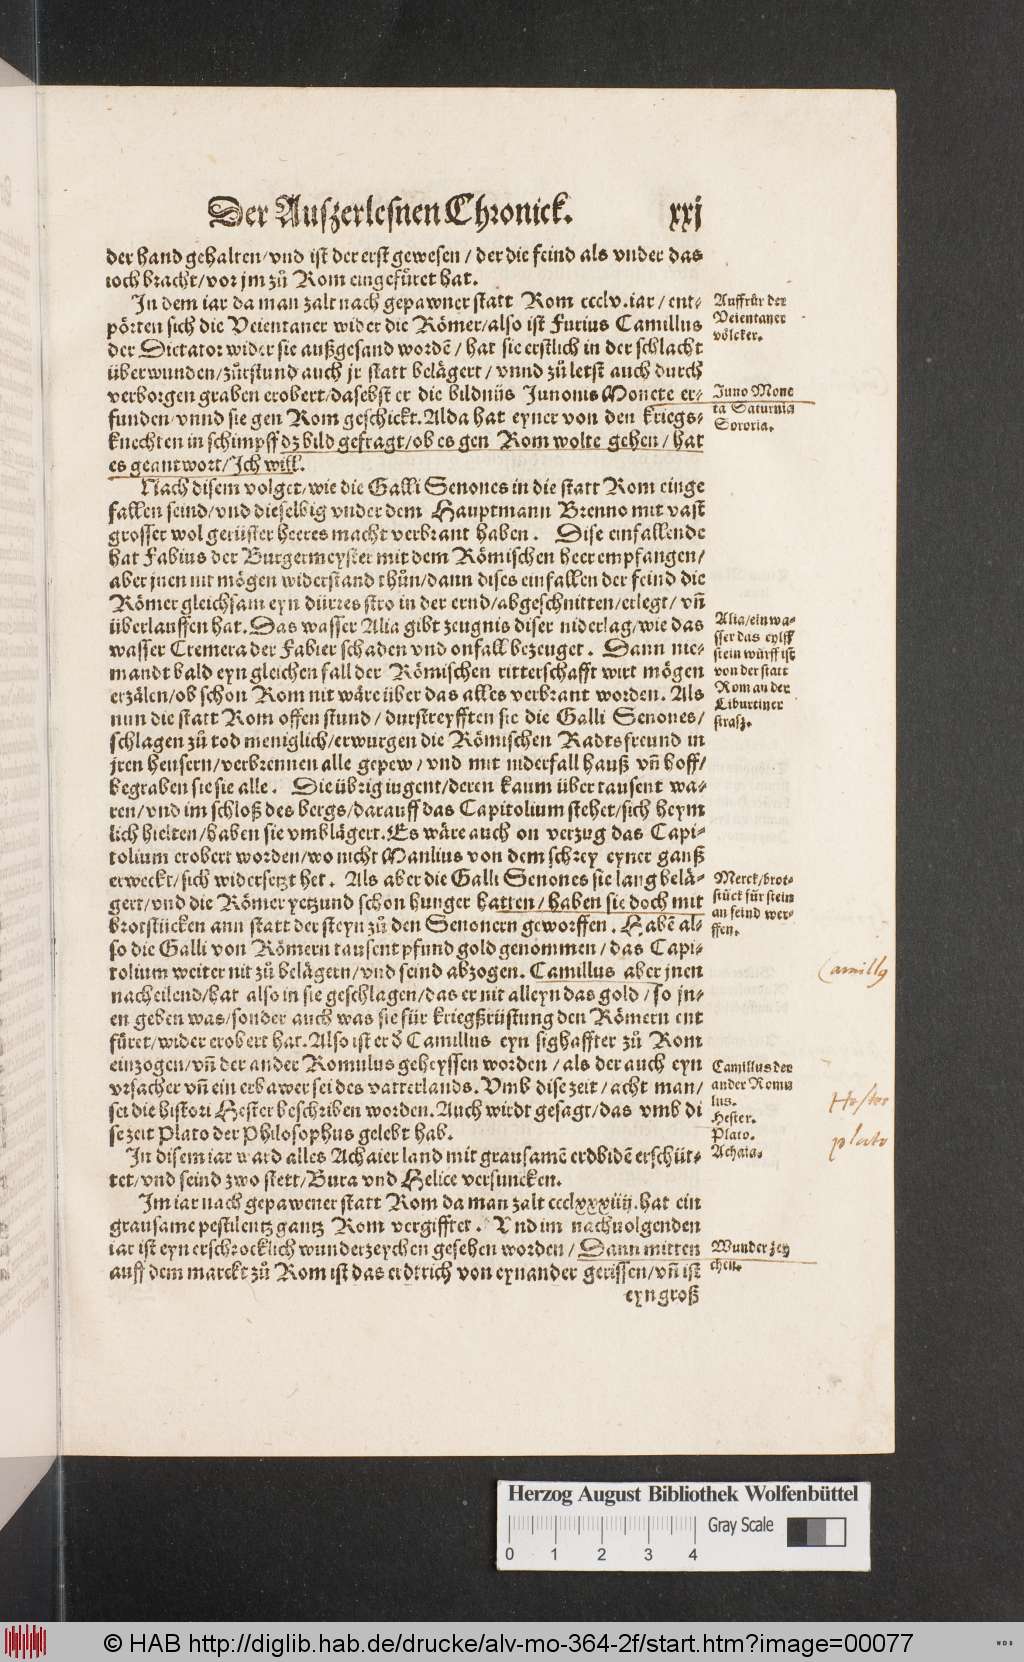 Der Auszerlesnen Chronick. xxj
der hand gehalten/vnd ist der erst gewesen / der die feind als vnder das
ioch bracht/vor jm zů Rom eingefůret hat.
In dem iar da man zalt nach gepawner statt Rom ccclv.iar / ent-
pörten sich die Veientaner wider die Römer/also ist Furius Camillus
der Dictator wider sie außgesand wordẽ / hat sie erstlich in der schlacht
überwunden/zůrstund auch jr statt belägert / vnnd zů letst auch durch
verborgen graben erobert/dasebst er die bildnüs Junonis Monete er-
funden/vnnd sie gen Rom geschickt. Alda hat eyner von den kriegs-
knechten in schimpff dz bild gefragt/ob es gen Rom wolte gehen / hat
es geantwort/Ich will.
Nach disem volget/wie die Galli Senones in die statt Rom einge
fallen seind/vnd dieselbig vnder dem Hauptmann Brenno mit vast
grosser wol gerüster heeres macht verbrant haben. Dise einfallende
hat Fabius der Burgermeyster mit dem Römischen heer empfangen/
aber jnen nit mögen widerstand thůn/dann dises einfallen der feind die
Römer gleichsam eyn dürres stro in der ernd/abgeschnitten/erlegt/ vñ
überlauffen hat. Das wasser Alia gibt zeugnis diser niderlag/wie das
wasser Cremera der Fabier schaden vnd onfall bezeuget. Dann nie-
mandt bald eyn gleichen fall der Römischen ritterschafft wirt mögen
erzälen/ob schon Rom nit wäre über das alles verbrant worden. Als
nun die statt Rom offen stund / durstreyfften sie die Galli Senones/
schlagen zů tod meniglich/erwurgen die Römischen Radtsfreund in
jren heusern/verbrennen alle gepew / vnd mit niderfall hauß vñ hoff/
begraben sie sie alle. Die übrig iugent/deren kaum über tausent wa-
ren/vnd im schloß des bergs/darauff das Capitolium stehet/sich heym
lich hielten/haben sie vmblägert. Es wäre auch on verzug das Capi-
tolium erobert worden/wo nicht Manlius von dem schrey eyner gauß
erweckt/sich widersetzt het. Als aber die Galli Senones sie lang belä-
gert/vnd die Römer yetzund schon hunger hatten / haben sie doch mit
brotstücken ann statt der steyn zů den Senonern geworffen. Habẽ al-
so die Galli von Römern tausent pfund gold genommen / das Capi-
tolium weiter nit zů belägern/vnd seind abzogen. Camillus aber jnen
nacheilend/hat also in sie geschlagen/das er nit alleyn das gold / so jn-
en geben was/sonder auch was sie für kriegßrüstung den Römern ent
füret/wider erobert hat. Also ist er d̃ Camillus eyn sighaffter zů Rom
einzogen/vñ der ander Romulus geheyssen worden / als der auch eyn
vrsacher vñ ein erbawer sei des vatterlands. Vmb dise zeit / acht man/
sei die histori Hester beschriben worden. Auch wirdt gesagt/das vmb di
se zeit Plato der Philosophus gelebt hab.
In disem iar ward alles Achaier land mit grausamẽ erdbidẽ erschüt-
tet/vnd seind zwo stett/Bura vnd Helice versuncken.
Im iar nach gepawener statt Rom da man zalt ccclxxxiiij. hat ein
grausame pestilentz gantz Rom vergifftet. Vnd im nachuolgenden
iar ist eyn erschrocklich wunderzeychen gesehen worden / Dann mitten
auff dem marckt zů Rom ist das erdtrich von eynander gerissen/vñ ist
eyn groß
Auffrůr der
Veientaner
völcker.
Juno Mone
ta Saturnia
Sororia.
Alia/ein wa-
sser das eylff
stein würff ist
von der statt
Rom an der
Tiburtiner
strasz.
Merck/brot-
stück für stein
an feind wer-
ffen.
Camillus der
ander Romu
lus.
Hester.
Plato.
Achaia.
Wunder zey
chen.
Camillus
Hester
plato
Herzog August Bibliothek Wolfenbüttel
Gray Scale
0 1 2 3 4
© HAB http://diglib.hab.de/drucke/alv-mo-364-2f/start.htm?image=00077